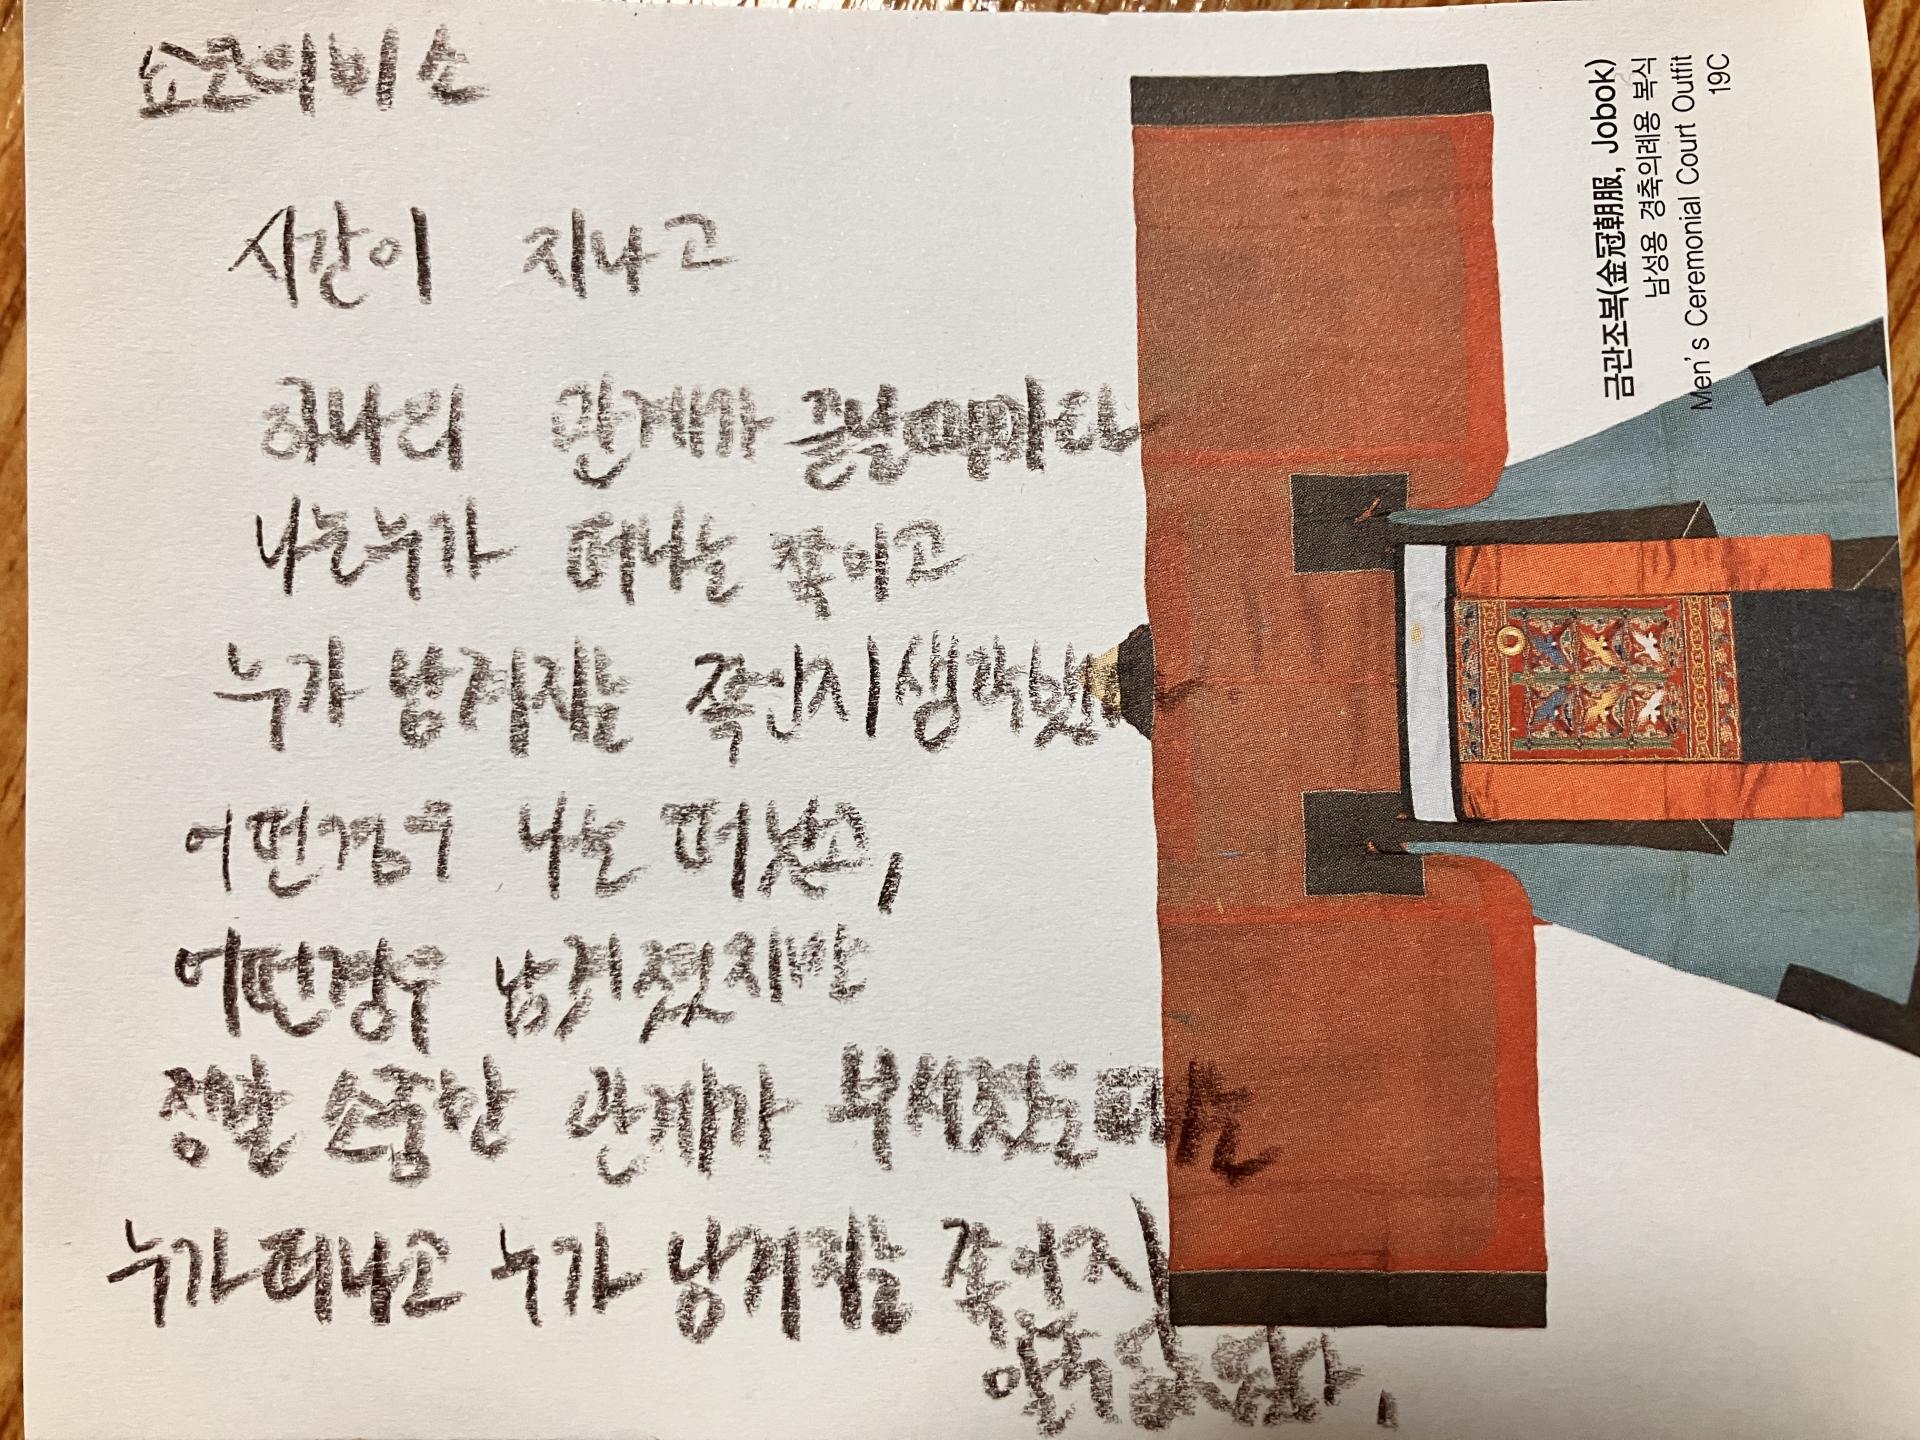 쇼코의 미소
시간이 지나고
하나의 관계가 끝날때마다
나는 누가 떠나는 쪽이고
누가 남겨지는 쪽인지 생각했
어떤경우 나는 떠났고,
어떤경우 남겨졌지만
정말 소중한 관계가 부서졌을때는
누가 떠나고 누가 남겨지는 쪽인지
알수 없었다.
금관조복(金冠朝服, Jobok)
남성용 경축의례용 복식
Men's Ceremonial Court Outfit
19C